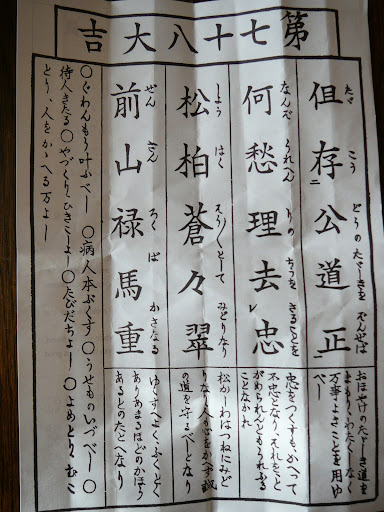 第七十八大吉
但存公道正
たゞ こう どうの たゞしきを ぞんせば
何愁理去忠
なんぞ うれへん りの ちうを さることを
松柏蒼々翠
しよう はく として みどりなり
前山禄馬重
ぜん ざん ろく ば かさなる
たゞしき道を
わたくしなく
万事よきことを用ゆ
べし
忠をつくすもかへつて
不忠となり それをと
がめられんともうれふる
ことなかれ
松かしわはつねにみど
りなり 人も心をかへず 誠
の道を守るべしとなり
ゆくすへよく、ふくとく
ありあまるほどのかほう
あるとのたとへなり
○ぐわんもう叶ふべし ○病人本ぷくす ○うせものいづべし ○
待人きたる ○やづくり、ひきこしよし ○たびだちよし ○よめとり、むこ
とり、人をかゝへる万よし